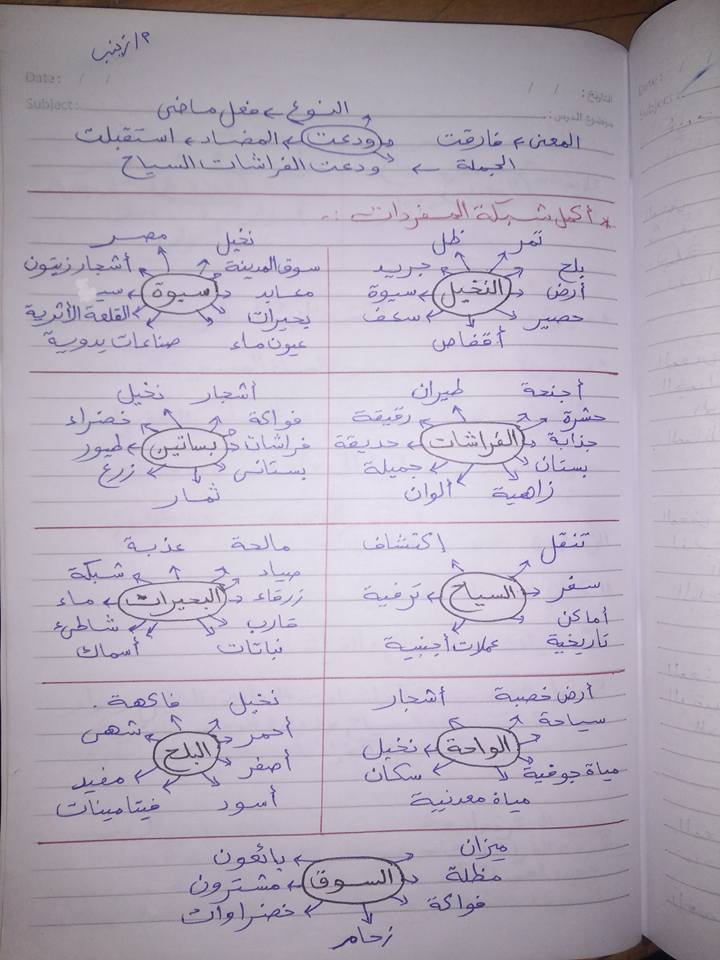 م/ زينب
Date: / /
التاريخ: / /
Subject:
موضوع الدرس:
النوع ← فعل ماضى
المعنى ← فارقت ودعت المضاد ← استقبلت
الجملة ← ودعت الفراشات السياح
* أكمل شبكة المفردات :-
تمر ظل
بلح جريد
أرض النخيل سيوة
حصير سعف
أقفاص
نخيل مصر
سوق المدينة أشجار زيتون
معابد سيوة
بحيرات القلعة الأثرية
عيون ماء صناعات يدوية
أجنحة طيران
حشرة رقيقة
جذابة الفراشات حديقة
بستان جميلة
زاهية ألوان
أشجار نخيل
فواكة خضراء
فراشات بساتين طيور
بستانى زرع
ثمار
تنقل إكتشاف
سفر السياح ترفية
أماكن
تاريخية عملات أجنبية
مالحة عذبة
صياد شبكة
زرقاء البحيرات ماء
قارب شاطىء
نباتات أسماك
أرض خصبة أشجار
سياحة
الواحة نخيل
مياة جوفية سكان
مياة معدنية
نخيل فاكهة .
أحمر شهى
البلح
أصفر مفيد
أسود فيتامينات
ميزان بائعون
مظلة السوق مشترون
فواكة خضراوات
زحام